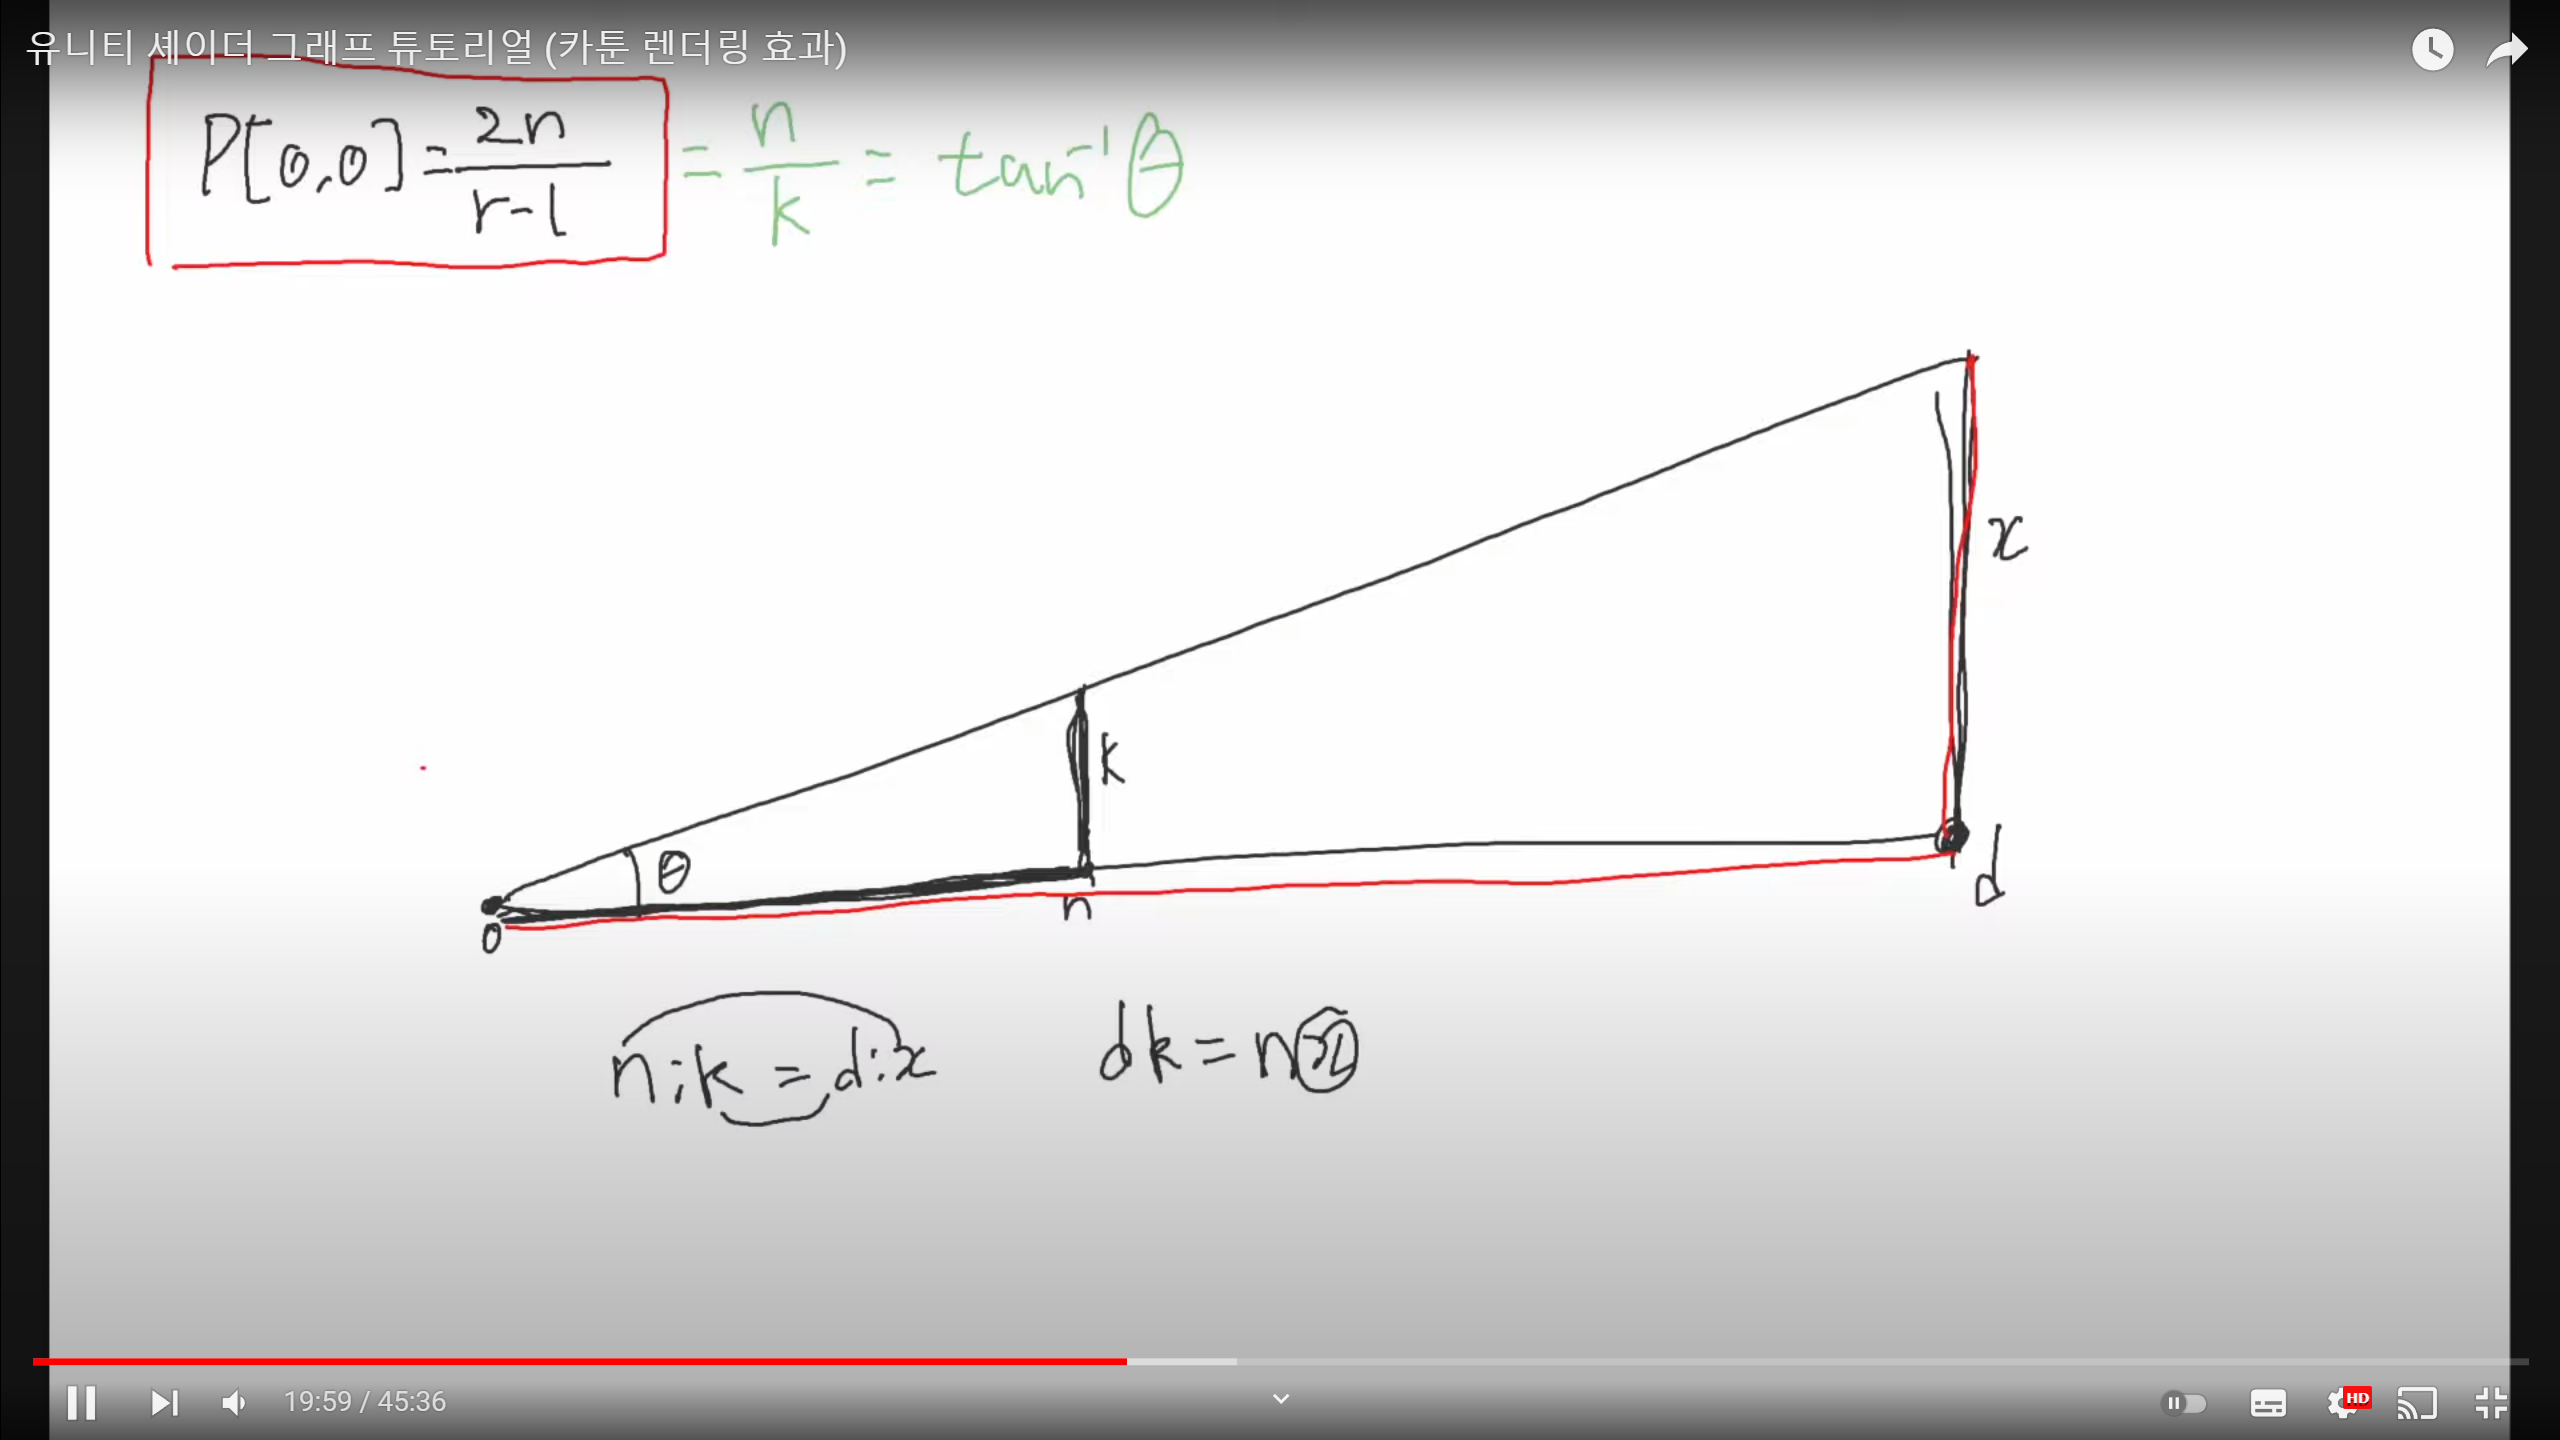 유니티 셰이더 그래프 튜토리얼 (카툰 렌더링 효과)
P[0,0] = 2n/r-l = n/k = tan⁻¹θ
x
k
θ
d
n
0
n:k = d:x
dk = nx
19:59 / 45:36
HD